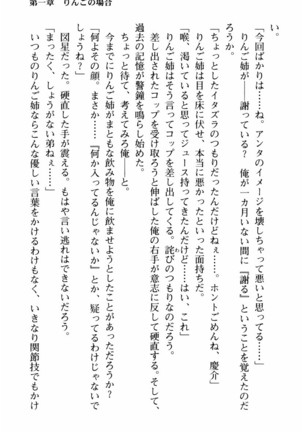 第一章　りんごの場合
い。
「今回ばかりは……ね。アンタのイメージを壊しちゃって悪いと思ってる……」
りんご姉が――謝っている？　俺が一カ月いない間に『謝る』ということを覚えたのだ
ろうか。
「ちょっとしたイタズラのつもりだったんだけどねぇ……。ホントごめんね、慶介」
りんご姉は目を床に伏せ、本当に悪かったといった面持ちだ。
「喉、渇いていると思ってジュース持ってきたんだけど……はい、これ」
りんご姉はそう言ってコップを差し出してくる。詫びのつもりなのだろう。
差し出されたコップを受け取ろうと伸ばした俺の右手が意志に反して硬直する。そして、
過去の記憶が警鐘を鳴らし始めた。
ちょっと待て、考えてみろ俺――と。
今までにりんご姉がまともな飲み物を俺に飲ませようとしたことがあっただろうか？
「何よその顔。まさか……『何か入ってるんじゃないか』とか、疑ってるわけじゃないで
しょうね？」
図星だった。硬直した手が震える。もはや言い逃れはできないだろう。
「まったく、しょうがない弟ねぇ……」
いつものりんご姉ならこんな優しい言葉をかけるわけもなく、いきなり関節技でもかけ